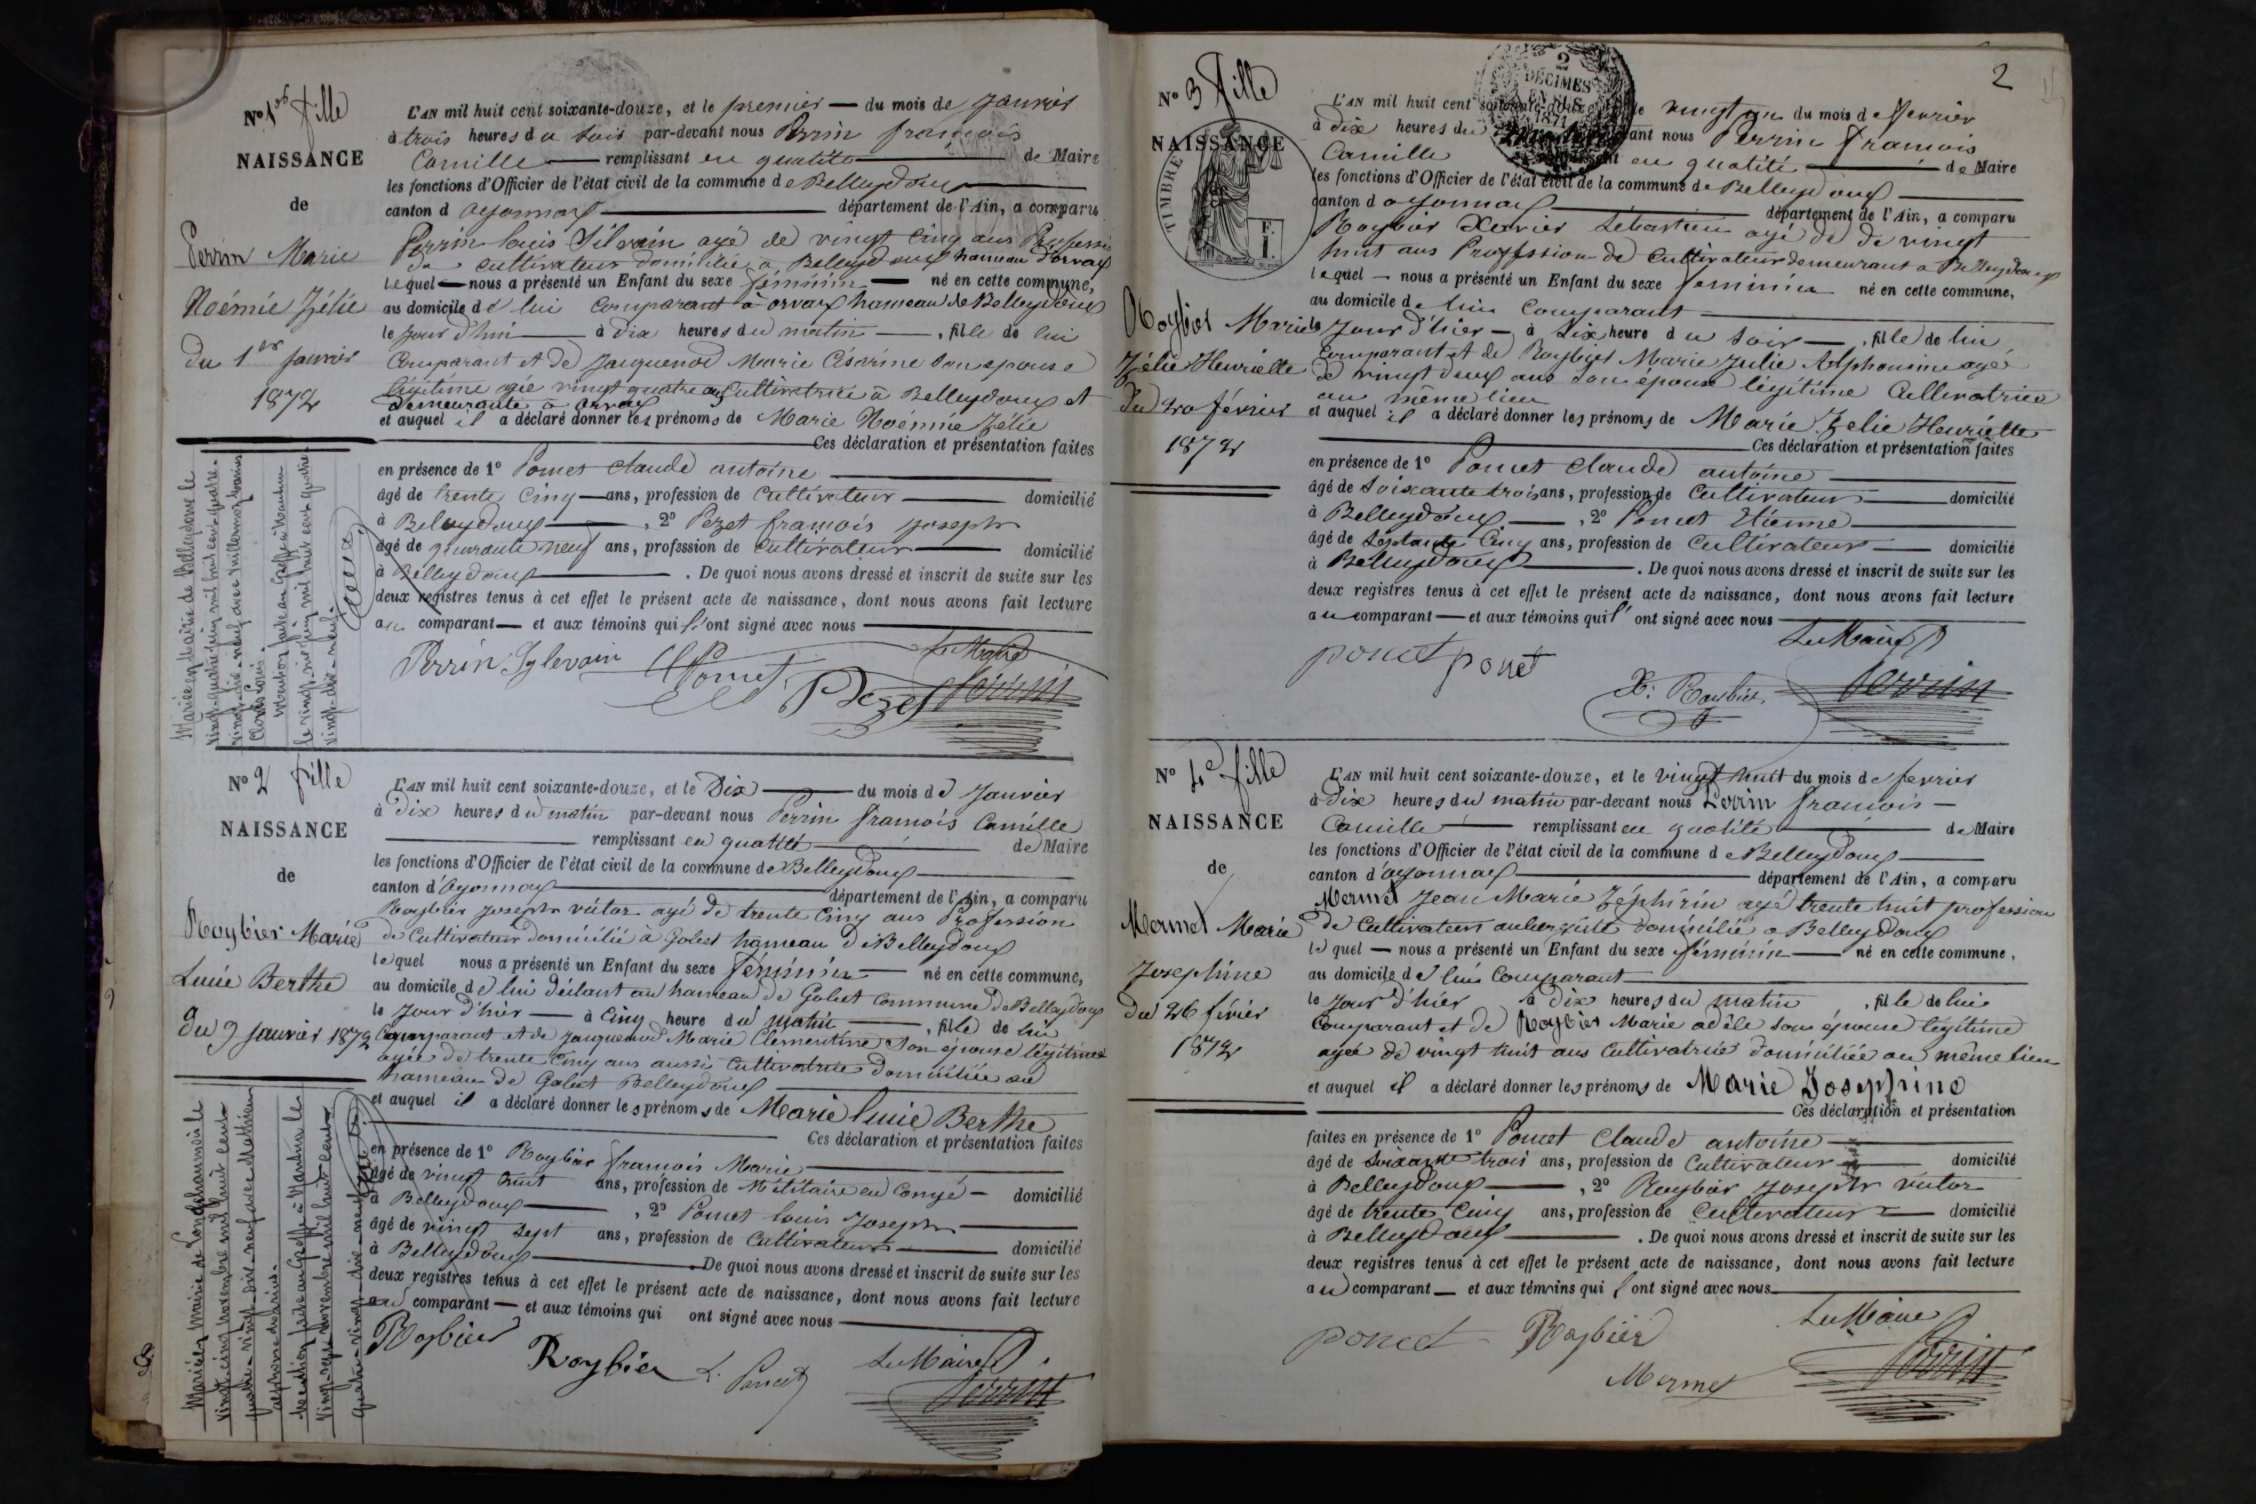 No 1er fille
NAISSANCE
de
Perrin Marie
Noémie Zélie
du 1er Janvier
1872
L'AN mil huit cent soixante-douze, et le premier — du mois de Janvier
à trois heures du soir par-devant nous Perrin françois
Camille — remplissant en qualité — de Maire
les fonctions d'Officier de l'état civil de la commune de Belleydoux
canton d oyonnax — département de l'Ain, a comparu
Perrin louis Silvain agé de vingt cinq ans Professi
de cultivateur domicilié a Belleydoux hameau d'orvaz
lequel — nous a présenté un Enfant du sexe féminin — né en cette commune,
au domicile de lui Comparant à orvaz hameau de Belleydoux
le jour d'hui — à dix heures du matin — , fille de lui
Comparant et de Jacquenod Marie Césarine son epouse
légitime agée vingt quatre ans Cultivatrice à Belleydoux et
demeurante à orvaz
et auquel il a déclaré donner les prénoms de Marie Noémie Zélie
Ces déclaration et présentation faites
en présence de 1º Poncet Claude antoine
âgé de trente cinq — ans, profession de Cultivateur — domicilié
à Belleydoux — , 2º Pezet françois joseph
âgé de quarante neuf ans, profession de cultivateur — domicilié
à Belleydoux — . De quoi nous avons dressé et inscrit de suite sur les
deux registres tenus à cet effet le présent acte de naissance, dont nous avons fait lecture
au comparant — et aux témoins qui l'ont signé avec nous
Mariée en Mairie de Belleydoux le
vingt-quatre juin mil huit cent quatre-
vingt-dix-neuf avec
Clovis Louis.
Mention faite au Greffe à Nantua
le vingt-six juin mil huit cent quatre
vingt-dix-neuf.
Perrin Sylevain
Poncet
Pezet
Le Maire
Perrin
No 2 fille
NAISSANCE
de
Roybier Marie
Lucie Berthe
du 9 Janvier 1872
L'AN mil huit cent soixante-douze, et le Dix — du mois de Janvier
à Dix heures du matin par-devant nous Perrin françois Camille
— remplissant en qualité — de Maire
les fonctions d'Officier de l'état civil de la commune de Belleydoux
canton d'Oyonnax — département de l'Ain, a comparu
Roybier joseph victor agé de trente cinq ans Profession
de Cultivateur domicilié à Gobet hameau de Belleydoux
lequel nous a présenté un Enfant du sexe féminin — né en cette commune,
au domicile de lui déclarant au hameau de Gobet commune de Belleydoux
le Jour d'hier — à Cinq heure du matin — , fille de lui
Comparant et de Jacquenod Marie Clementine son épouse légitime
agée de trente cinq ans aussi Cultivatrice domiciliée au
hameau de Gobet Belleydoux
et auquel il a déclaré donner les prénoms de Marie lucie Berthe
Ces déclaration et présentation faites
en présence de 1º Roybier françois Marie
âgé de vingt huit ans, profession de Militaire en Congé — domicilié
à Belleydoux — , 2º Poncet louis Joseph
âgé de vingt sept ans, profession de Cultivateur — domicilié
à Belleydoux — De quoi nous avons dressé et inscrit de suite sur les
deux registres tenus à cet effet le présent acte de naissance, dont nous avons fait lecture
au comparant — et aux témoins qui ont signé avec nous
Mariée en Mairie de Longchaumois le
vingt-cinq novembre mil huit cent
quatre-vingt-dix-neuf avec Mathieu
Mention faite au Greffe à Nantua le
novembre mil huit cent
quatre-vingt-dix-neuf
Roybier
Roybier
L. Poncet
Le Maire
Perrin
2
No 3 fille
NAISSANCE
TIMBRE
F.
1.
2
DÉCIMES
EN SUS
1871
Roybier Marie
Zélie Henriette
du 20 février
1872
L'AN mil huit cent soixante-douze, et le vingt un du mois de fevrier
à dix heures du par-devant nous Perrin francois
Camille remplissant en qualité — de Maire
les fonctions d'Officier de l'état civil de la commune de Belleydoux
canton d oyonnax — département de l'Ain, a comparu
Roybier Xavier Sébastien agé de de vingt
huit ans Proffession de Cultivateur demeurant a Belleydoux
lequel — nous a présenté un Enfant du sexe feminin né en cette commune,
au domicile de lui Comparant
le Jour d'hier — à Six heure du soir — , fille de lui
Comparant et de Roybier Marie Julie Alphonsine agé
de vingt deux ans son épouse légitime Cultivatrice
au même lieu
et auquel il a déclaré donner les prénoms de Marie Zelie Henriette
Ces déclaration et présentation faites
en présence de 1º Poncet Claude antoine
âgé de soixante trois ans, profession de Cultivateur — domicilié
à Belleydoux — , 2º Poncet Etienne
âgé de septante cinq ans, profession de Cultivateur — domicilié
à Belleydoux — . De quoi nous avons dressé et inscrit de suite sur les
deux registres tenus à cet effet le présent acte de naissance, dont nous avons fait lecture
au comparant — et aux témoins qui l' ont signé avec nous
Le Maire
poncet poncet
X. Roybier
Perrin
No 4e fille
NAISSANCE
de
Mermet Marie
Josephine
du 26 févier
1872
L'AN mil huit cent soixante-douze, et le vingt huit du mois de fevrier
à Dix heures du matin par-devant nous Perrin francois —
Camille — remplissant en qualité — de Maire
les fonctions d'Officier de l'état civil de la commune de Belleydoux
canton d'oyonnax — département de l'Ain, a comparu
Mermet Jean Marie Zéphirin agé trente huit profession
de Cultivateur aubergiste domicilié a Belleydoux
lequel — nous a présenté un Enfant du sexe féminin — né en cette commune,
au domicile de lui Comparant
le Jour d'hier à dix heures du matin , fille de lui
Comparant et de Roybier Marie adèle son épouse légitime
agée de vingt huit ans Cultivatrice domiciliée au même lieu
et auquel il a déclaré donner les prénoms de Marie Josephine
Ces déclaration et présentation
faites en présence de 1º Poncet Claude antoine
âgé de soixante trois ans, profession de Cultivateur — domicilié
à Belleydoux — , 2º Roybier Joseph victor
âgé de trente Cinq ans, profession de Cultivateur — domicilié
à Belleydoux — . De quoi nous avons dressé et inscrit de suite sur les
deux registres tenus à cet effet le présent acte de naissance, dont nous avons fait lecture
au comparant — et aux témoins qui l ont signé avec nous
poncet Roybier
Mermet
Le Maire
Perrin